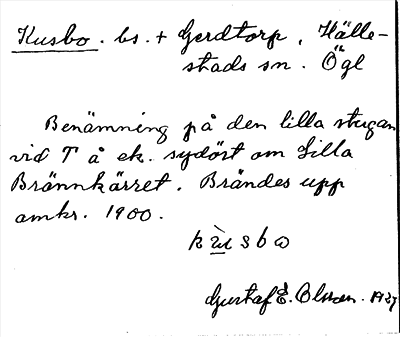 Kusbo. bs. + Gerdtorp, Hälle-
stads sn. Ögl
Benämning på den lilla stugan
vid T å ek. sydöst om Lilla
Brännkärret. Brändes upp
omkr. 1900.
Gustaf E. Olsson. 1937